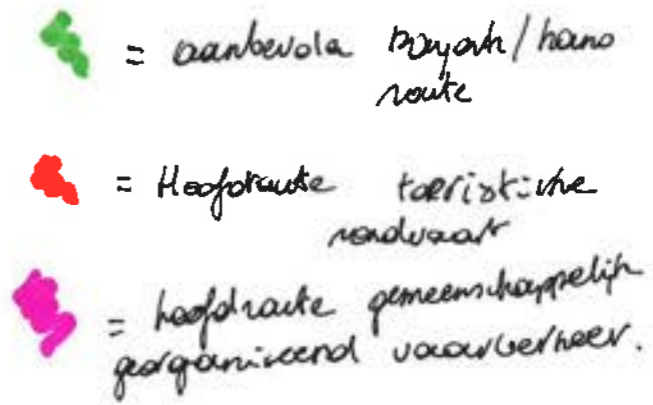 = aanbevola kayak/kano
route
= Hoofdroute toeristische
rondvaart
= hoofdroute gemeenschappelijk
georganiseerd vaarverkeer.